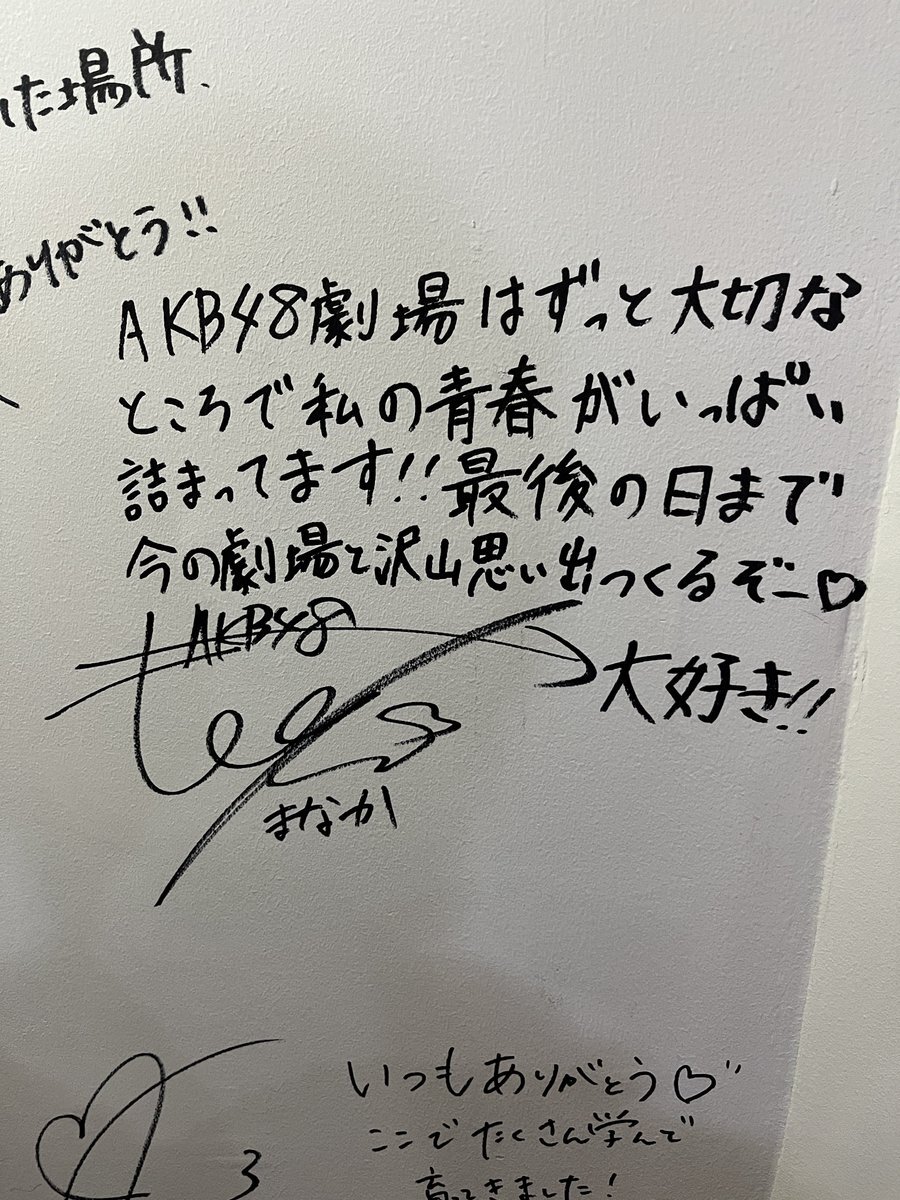 した場所.
ありがとう!!
AKB48劇場はずっと大切な
ところで私の青春がいっぱい
詰まってます!!最後の日まで
今の劇場と沢山思い出つくるぞー♡
AKB48
大好き!!
まなか
いつもありがとう♡
ここでたくさん学んで
育ってきました!
3